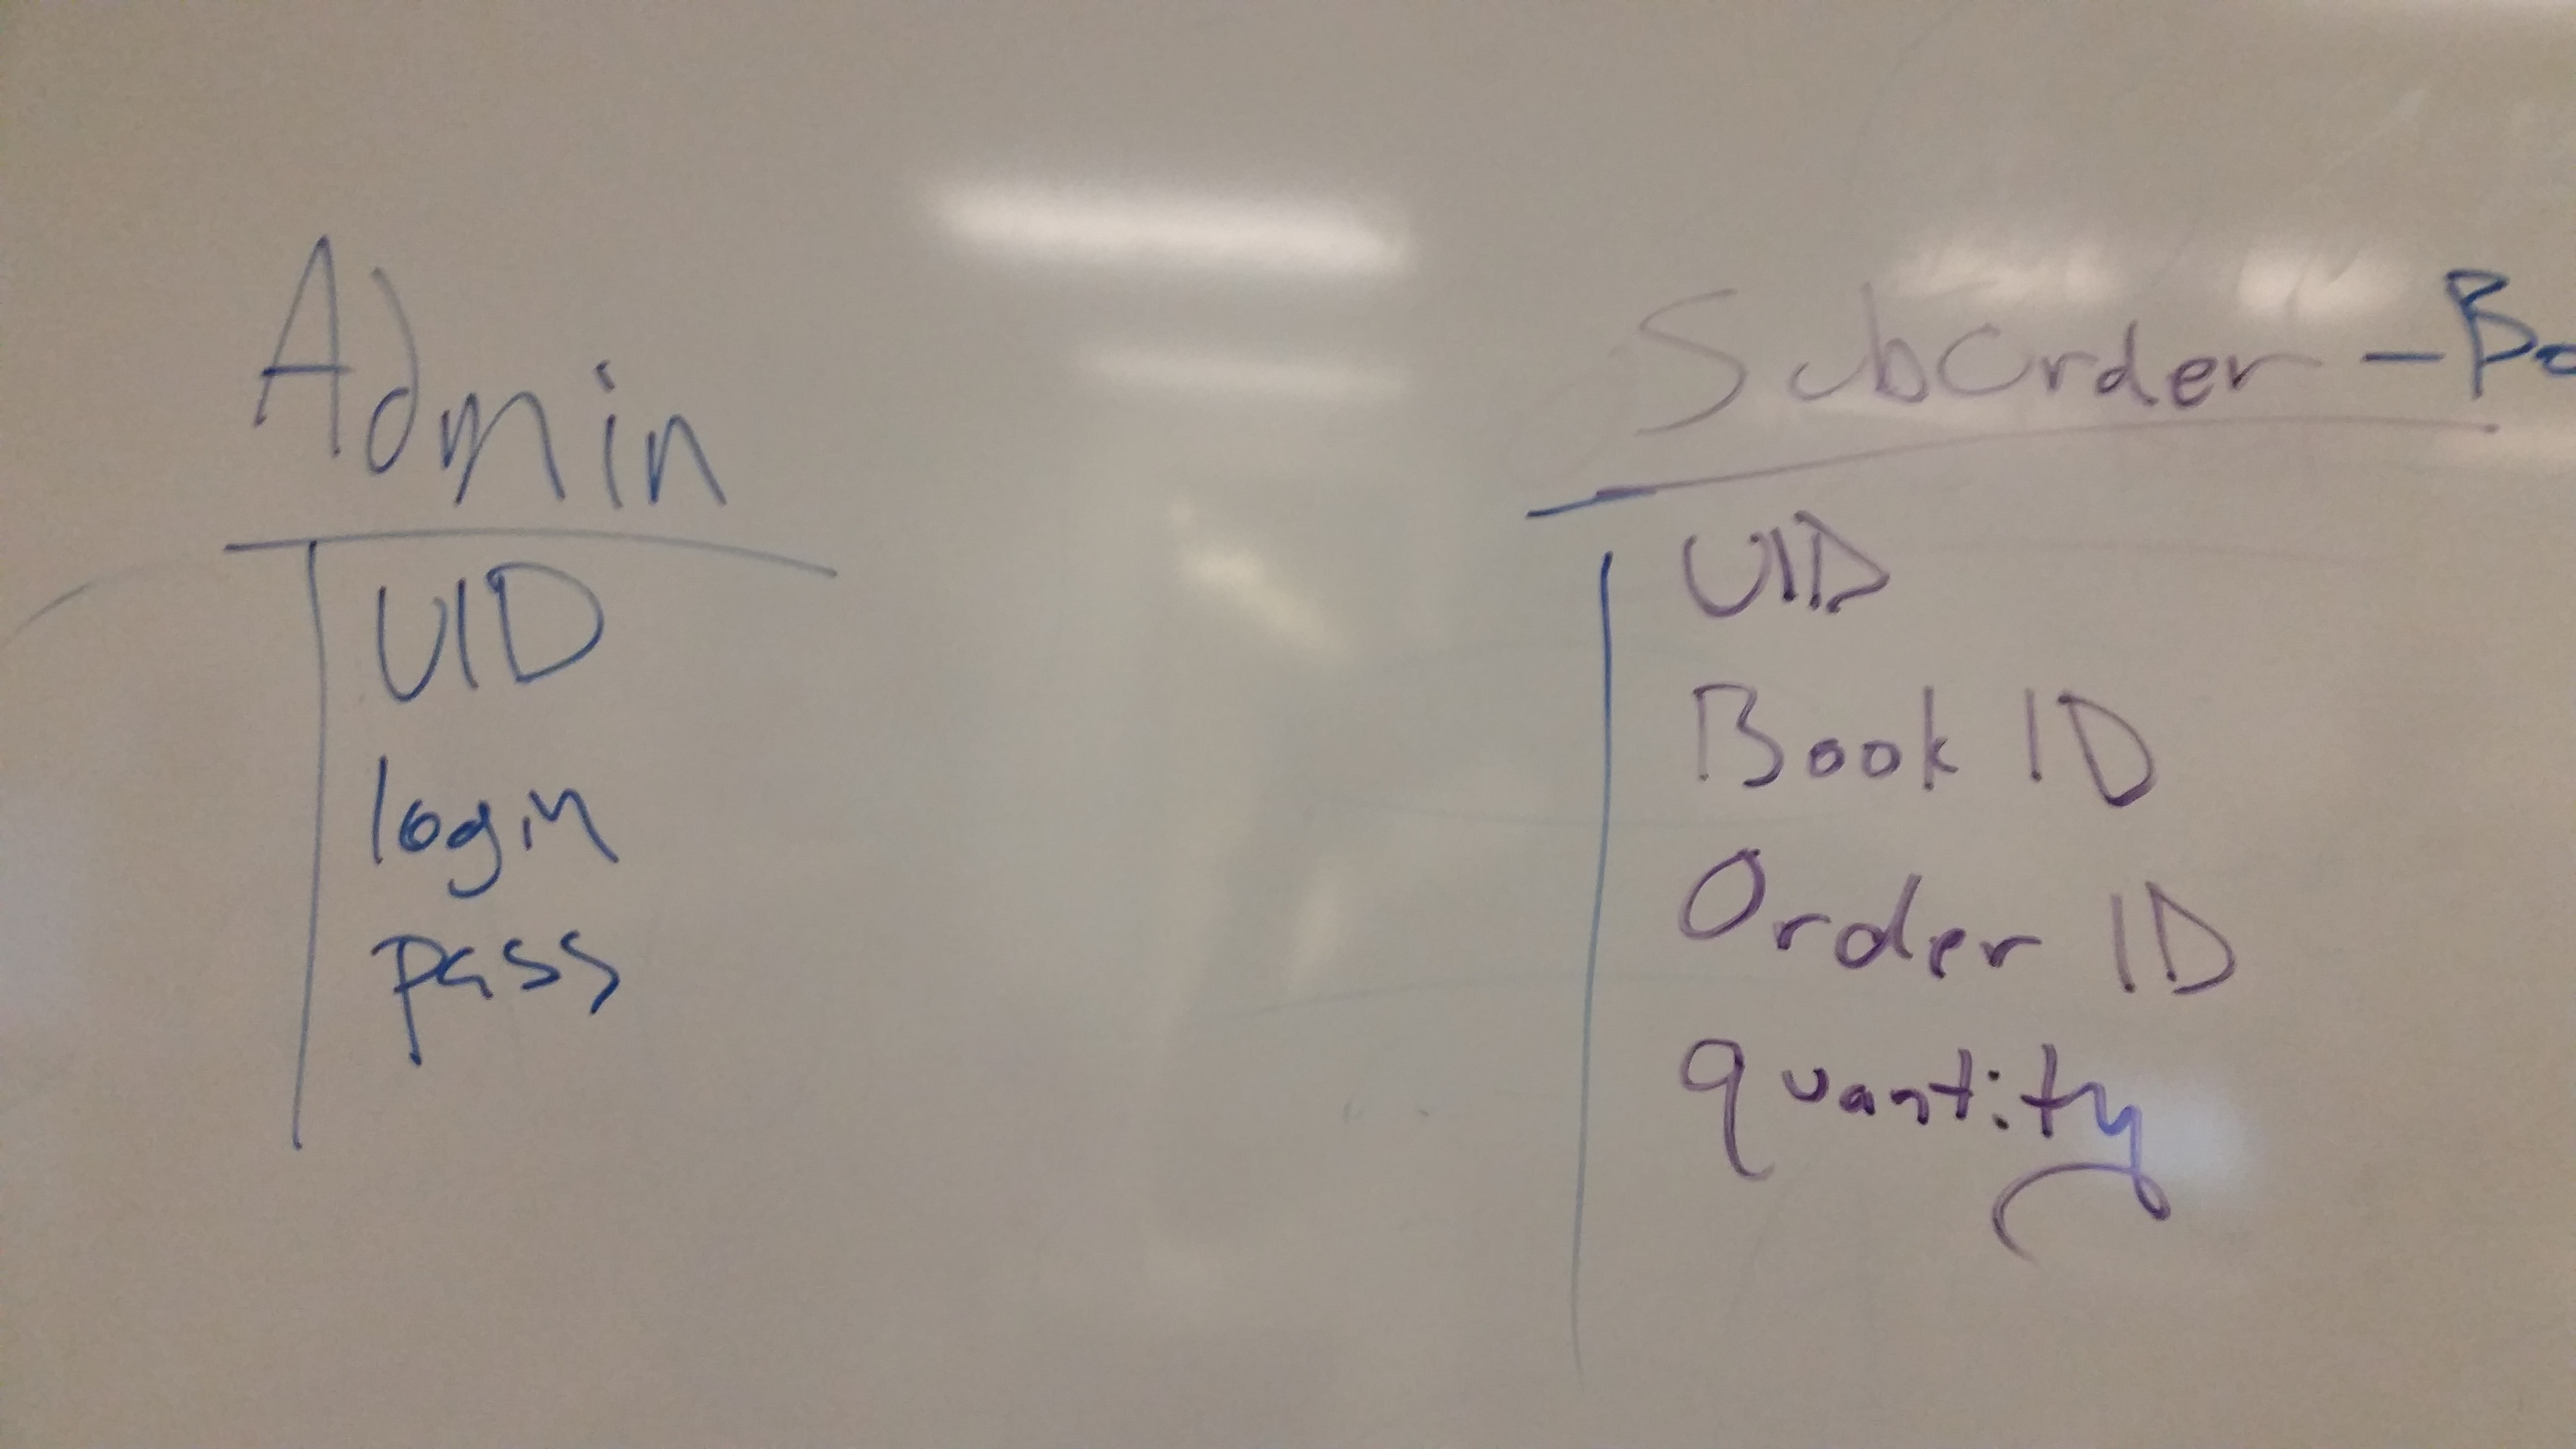 Admin
UID
login
pass
SubOrder - Bo
UID
Book ID
Order ID
quantity